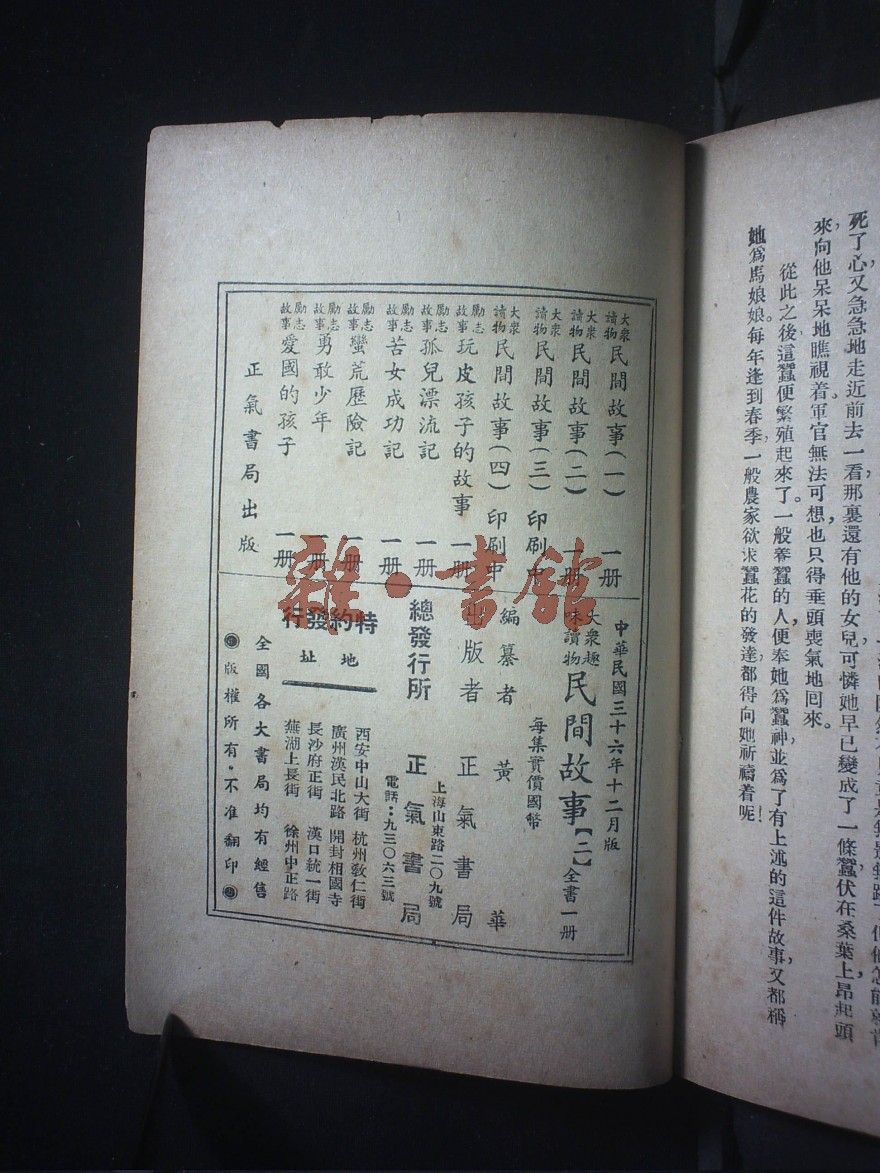 死了心又急急地走近前去一看那裏還有他的女兒可憐她早已變成了一條蠶伏在桑葉上昂起頭
來向他呆呆地瞧視着。軍官無法可想，也只得垂頭喪氣地回來。
從此之後，這蠶便繁殖起來了。一般養蠶的人，便奉她爲蠶神，並爲了有上述的這件故事，又都稱
她爲馬娘娘。每年逢到春季，一般農家欲求蠶花的發達，都得向她祈禱着呢！
大衆讀物 民間故事(一) 一册
大衆讀物 民間故事(二) 一册
大衆讀物 民間故事(三) 印刷中
大衆讀物 民間故事(四) 印刷中
勵志故事 玩皮孩子的故事 一册
勵志故事 孤兒漂流記 一册
勵志故事 苦女成功記 一册
勵志故事 蠻荒歷險記 一册
勵志故事 勇敢少年 一册
勵志故事 愛國的孩子 一册
正氣書局出版
中華民國三十六年十二月版
大衆趣味讀物 民間故事【二】全書一册
每集實價國幣
編纂者 黃華
出版者 正氣書局
上海山東路二〇九號
總發行所 正氣書局
電話：九三〇六三號
特約發行
地址
西安中山大街 杭州敎仁街
廣州漢民北路 開封相國寺
長沙府正街 漢口統一街
蕪湖上長街 徐州中正路
全國各大書局均有經售
版權所有·不准翻印
雜·書館